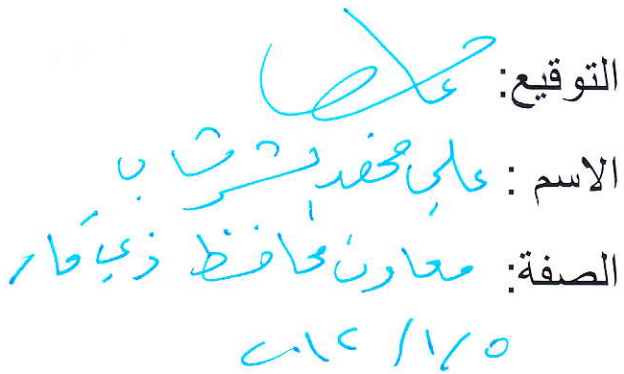 التوقيع:
الاسم : علي محمد
الصفة: معاون محافظ ذي قار
٢٠١٢ / ١ / ٥